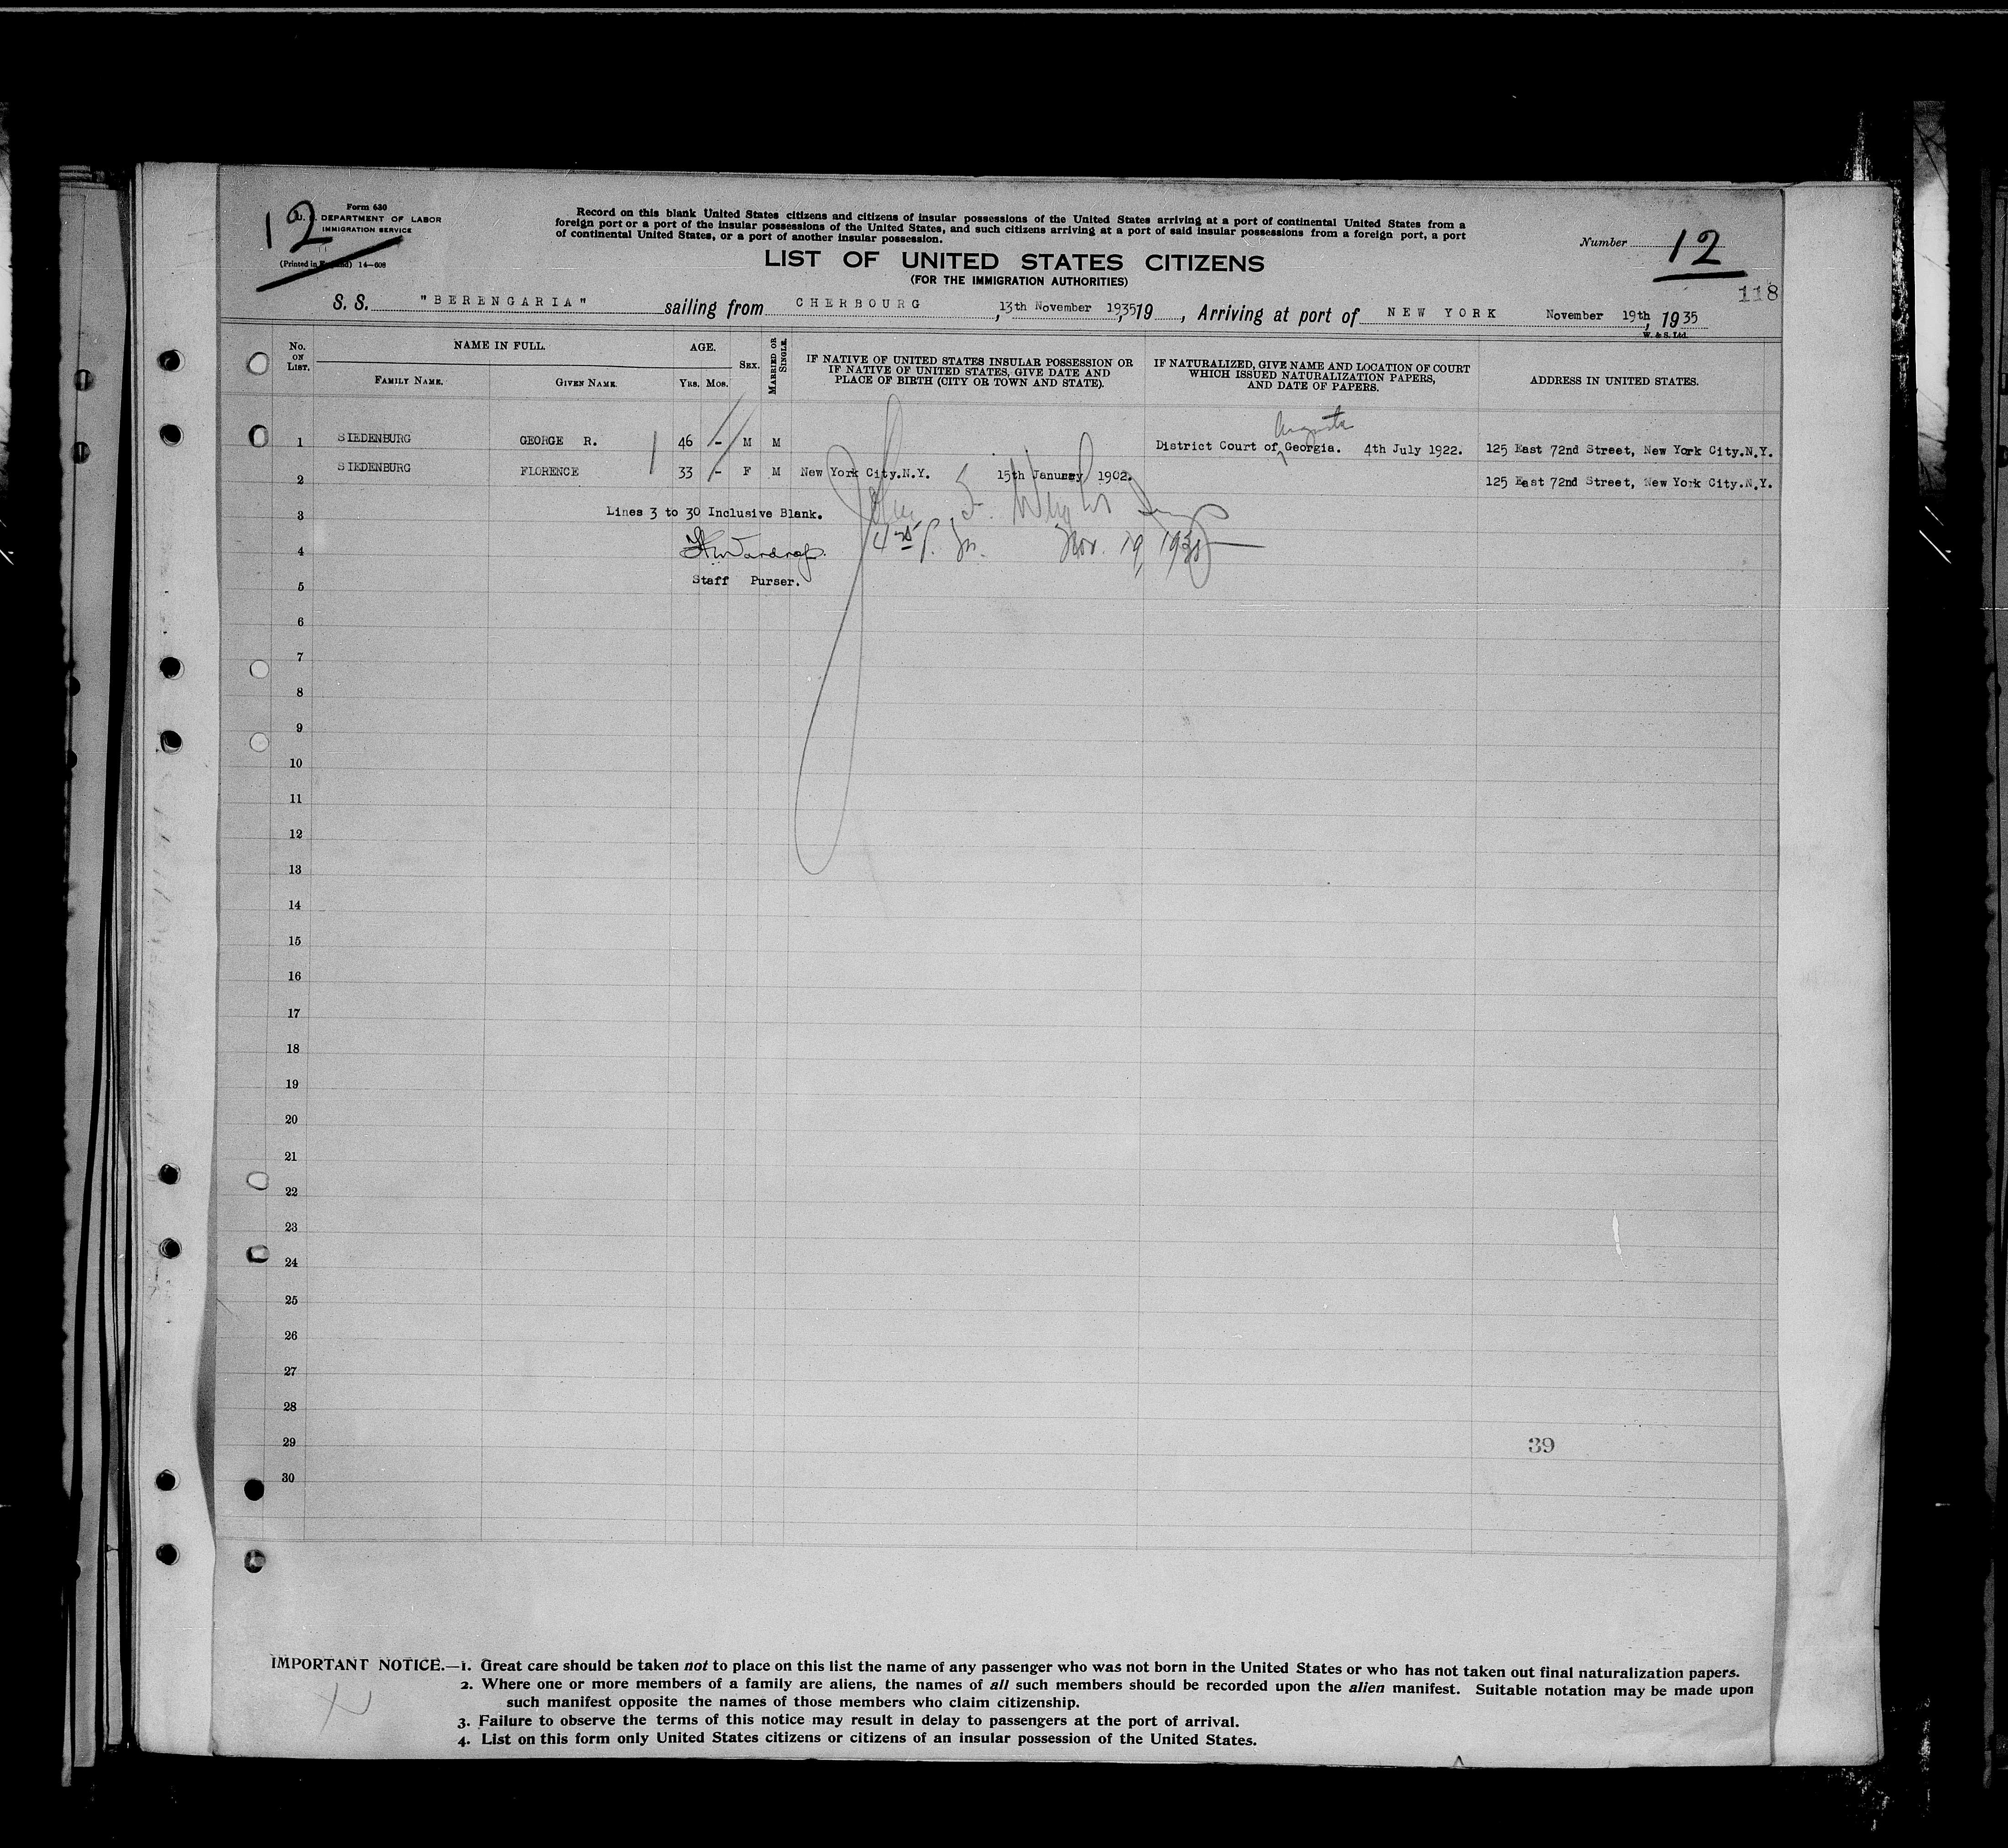 12
Form 630
U. S. DEPARTMENT OF LABOR
IMMIGRATION SERVICE
(Printed in England) 14—608
Record on this blank United States citizens and citizens of insular possessions of the United States arriving at a port of continental United States from a
foreign port or a port of the insular possessions of the United States, and such citizens arriving at a port of said insular possessions from a foreign port, a port
of continental United States, or a port of another insular possession.
Number 12
LIST OF UNITED STATES CITIZENS
(FOR THE IMMIGRATION AUTHORITIES)
118
S. S. "BERENGARIA" sailing from CHERBOURG, 13th November 1935, 19 , Arriving at port of NEW YORK November 19th, 1935
W. & S. Ltd.
No. ON LIST. NAME IN FULL. AGE. SEX. MARRIED OR SINGLE. IF NATIVE OF UNITED STATES INSULAR POSSESSION OR IF NATIVE OF UNITED STATES, GIVE DATE AND PLACE OF BIRTH (CITY OR TOWN AND STATE). IF NATURALIZED, GIVE NAME AND LOCATION OF COURT WHICH ISSUED NATURALIZATION PAPERS, AND DATE OF PAPERS. ADDRESS IN UNITED STATES.
FAMILY NAME. GIVEN NAME. YRS. MOS.
Augusta
1 SIEDENBURG GEORGE R. 46 - M M District Court of Georgia. 4th July 1922. 125 East 72nd Street, New York City.N.Y.
2 SIEDENBURG FLORENCE 33 - F M New York City.N.Y. 15th January 1902. 125 East 72nd Street, New York City.N.Y.
3 Lines 3 to 30 Inclusive Blank.
4 Nov. 19, 1935
5 Staff Purser.
6
7
8
9
10
11
12
13
14
15
16
17
18
19
20
21
22
23
24
25
26
27
28
29 39
30
IMPORTANT NOTICE.—1. Great care should be taken not to place on this list the name of any passenger who was not born in the United States or who has not taken out final naturalization papers.
2. Where one or more members of a family are aliens, the names of all such members should be recorded upon the alien manifest. Suitable notation may be made upon
such manifest opposite the names of those members who claim citizenship.
3. Failure to observe the terms of this notice may result in delay to passengers at the port of arrival.
4. List on this form only United States citizens or citizens of an insular possession of the United States.